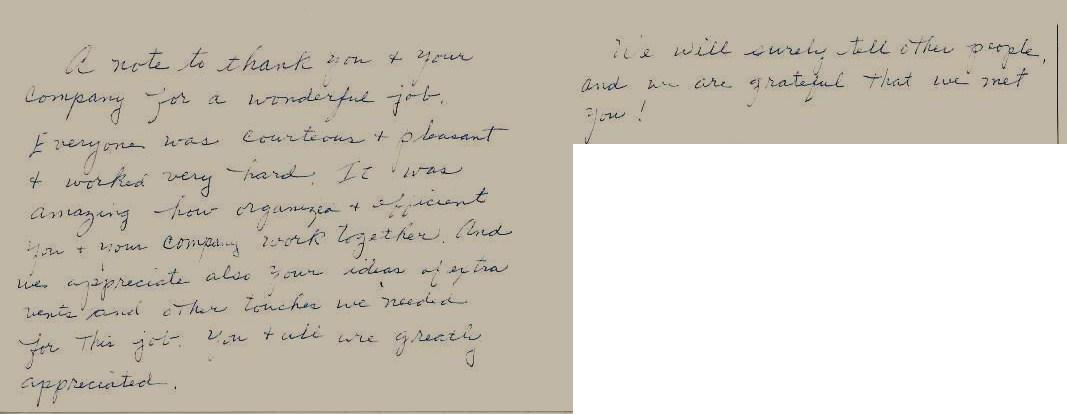 A note to thank you + your
company for a wonderful job.
Everyone was courteous + pleasant
+ worked very hard. It was
amazing how organized + efficient
you + your company work together. And
we appreciate also your ideas of extra
vents and other touches we needed
for this job. You + all are greatly
appreciated.
We will surely tell other people,
and we are grateful that we met
you!